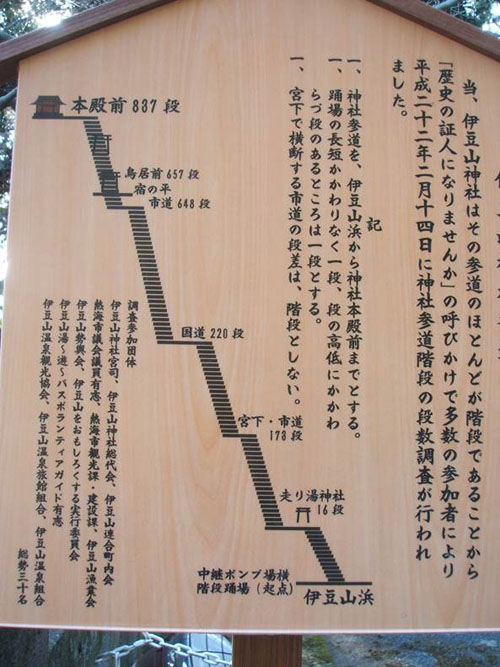 当、伊豆山神社はその参道のほとんどが階段であることから
「歴史の証人になりませんか」の呼びかけで多数の参加者により
平成二十二年二月十四日に神社参道階段の段数調査が行われ
ました。
記
一、神社参道を、伊豆山浜から神社本殿前までとする。
一、踊場の長短かかわりなく一段、段の高低にかかわ
らづ段のあるところは一段とする。
一、宮下で横断する市道の段差は、階段としない。
本殿前 837 段
鳥居前 657 段
宿の平
市道 648 段
国道 220 段
宮下・市道
173 段
走り湯神社
16 段
中継ポンプ場横
階段踊場(起点)
伊豆山浜
調査参加団体
伊豆山神社宮司、伊豆山神社総代会、伊豆山連合町内会
熱海市議会議員有志、熱海市観光課・建設課、伊豆山漁業会
伊豆山勢輿会、伊豆山をおもしろくする実行委員会
伊豆山湯~遊~バスボランティアガイド有志
伊豆山温泉観光協会、伊豆山温泉旅館組合、伊豆山温泉組合
総勢三十名